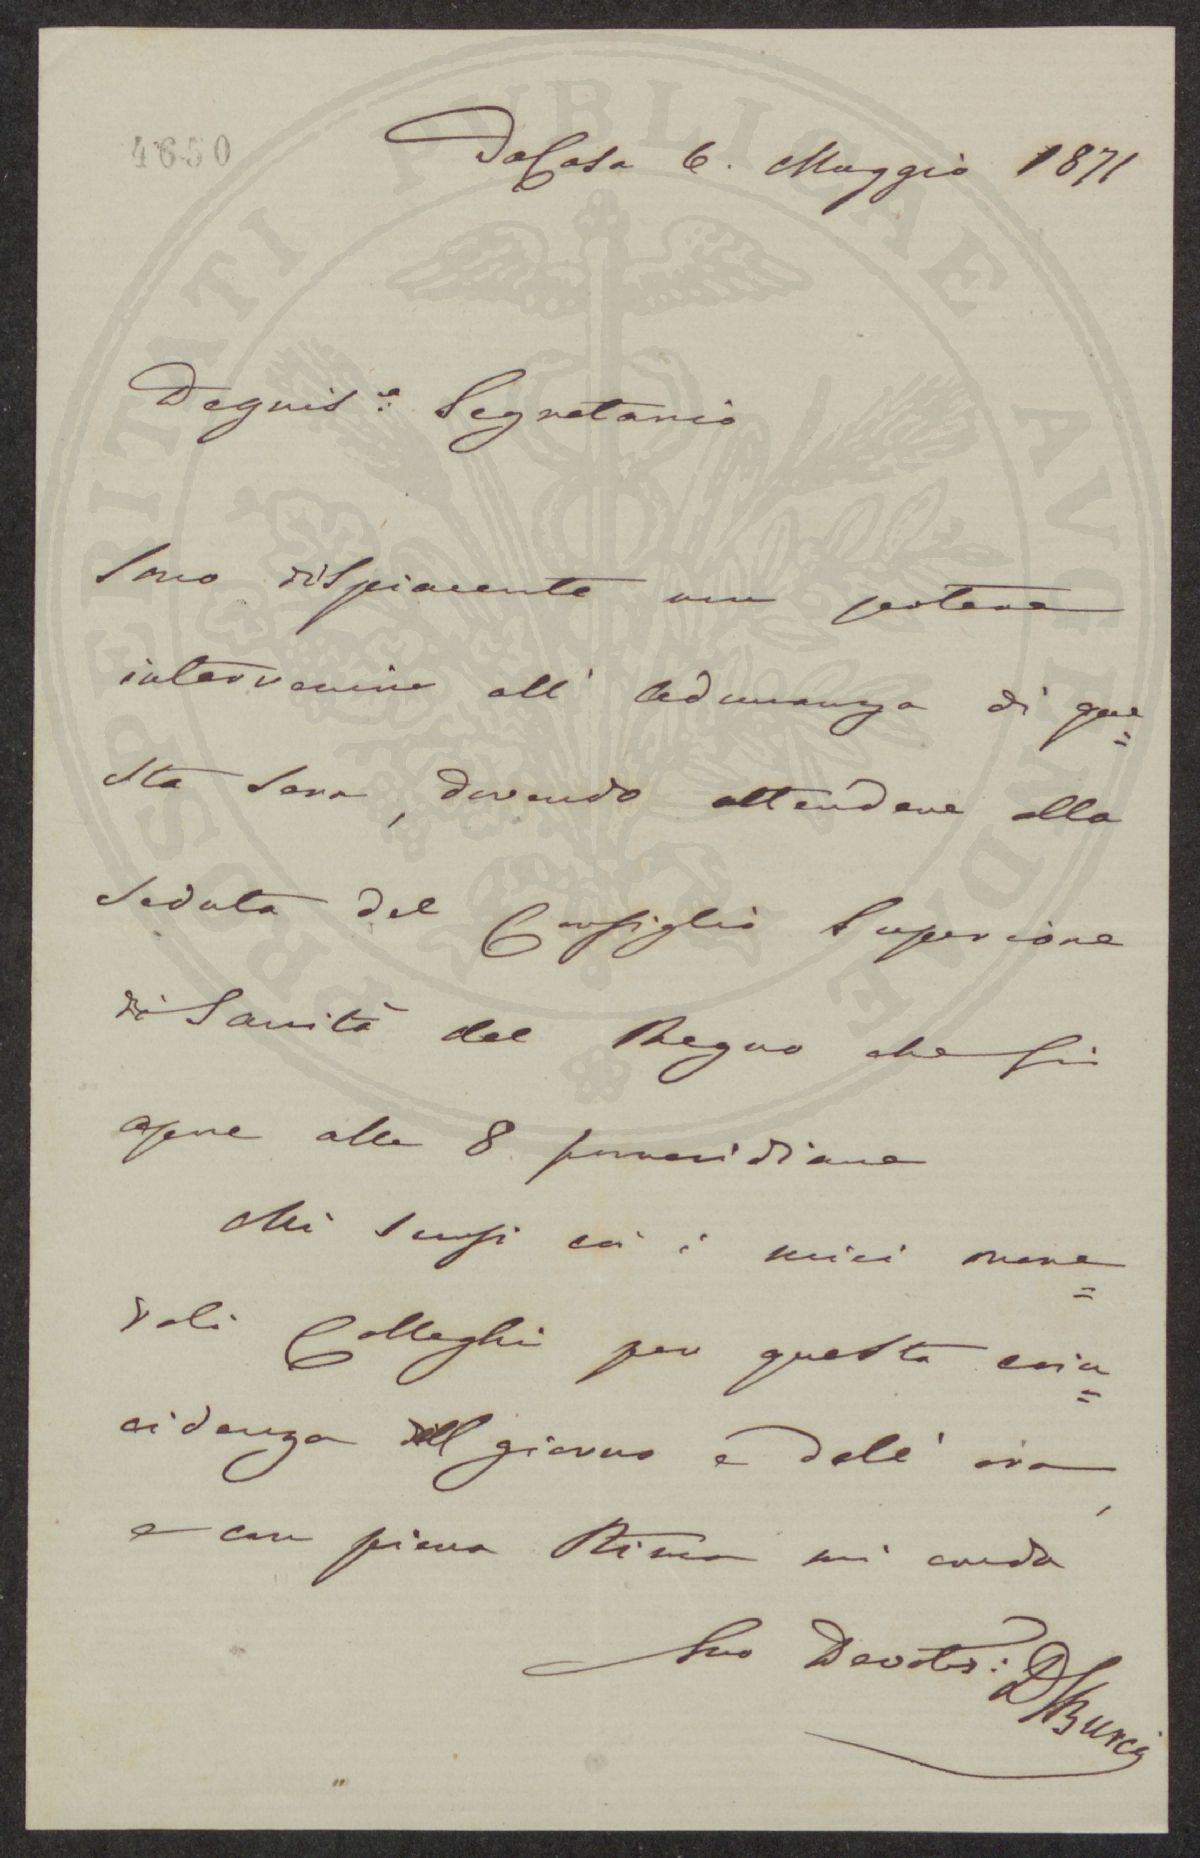 4650
Da Casa 6. Maggio 1871
Degnis.e Segretario
Sono dispiacente non potere
intervenire all' Adunanza di que=
sta sera, dovendo attendere alla
seduta del Consiglio Superiore
di Sanità del Regno che si
apre alle 8 pomeridiane
Mi scusi coi i miei onore=
voli Colleghi per questa coin=
cidenza del giorno e dell' ora,
e con piena stima mi creda
Suo Devotis: D Burci
PROSPERITATI PUBLICAE AVGENDAE